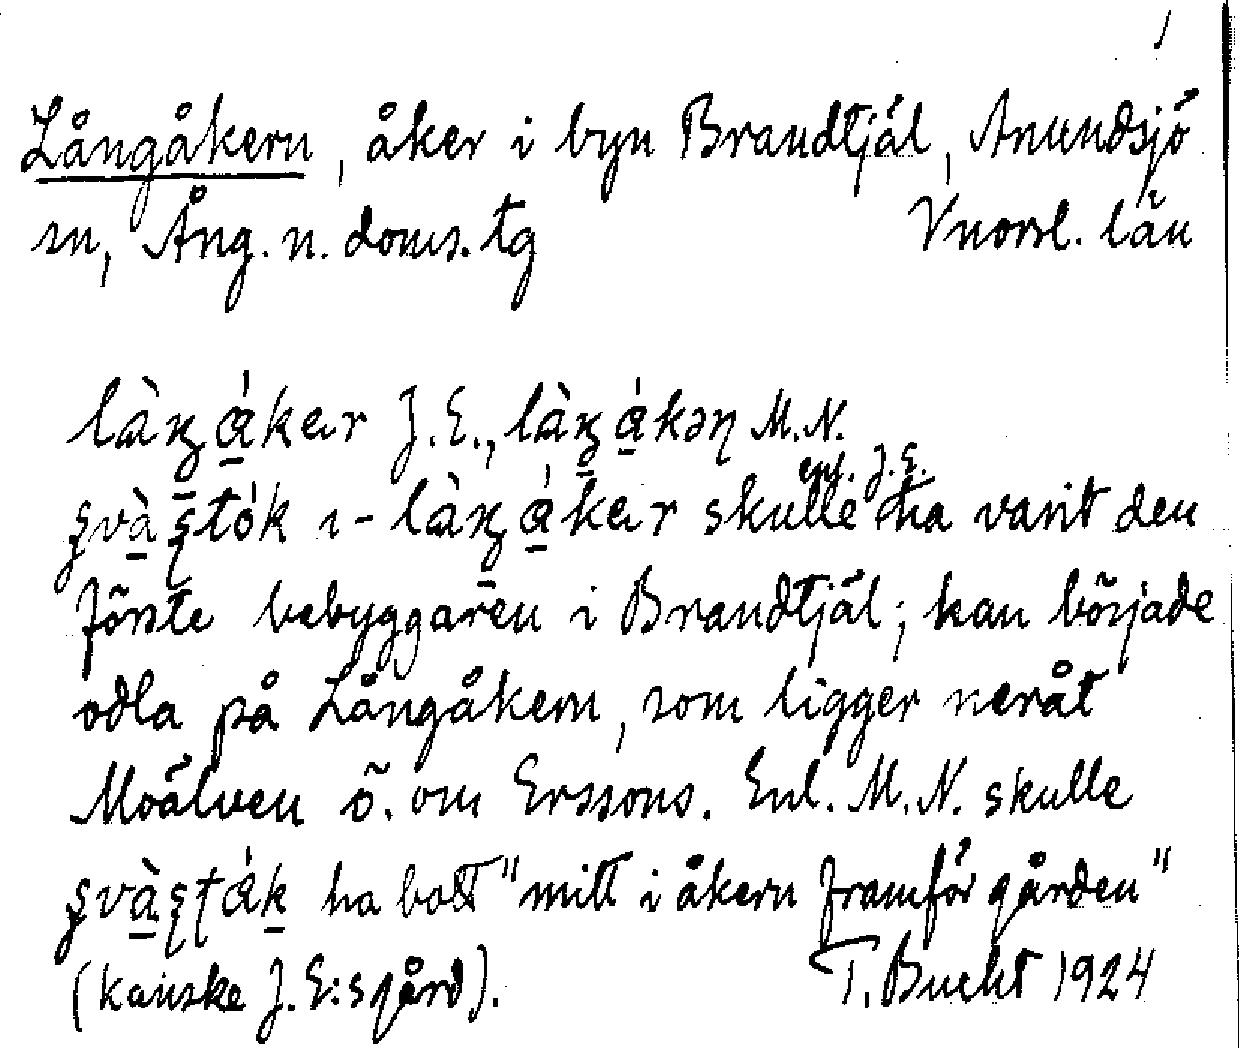 Långåkern, åker i byn Brandtjäl, Anundsjö
sn, Ång. n. doms. tg Vnorrl. län
J. E., M. N.
skulle enl. J. E. ha varit den
förste bebyggaren i Brandtjäl; han började
odla på Långåkern, som ligger neråt
Moälven ö. om Erssons. Enl. M. N. skulle
ha bott "mitt i åkern framför gården"
(kanske J. E:s gård). T. Bucht 1924